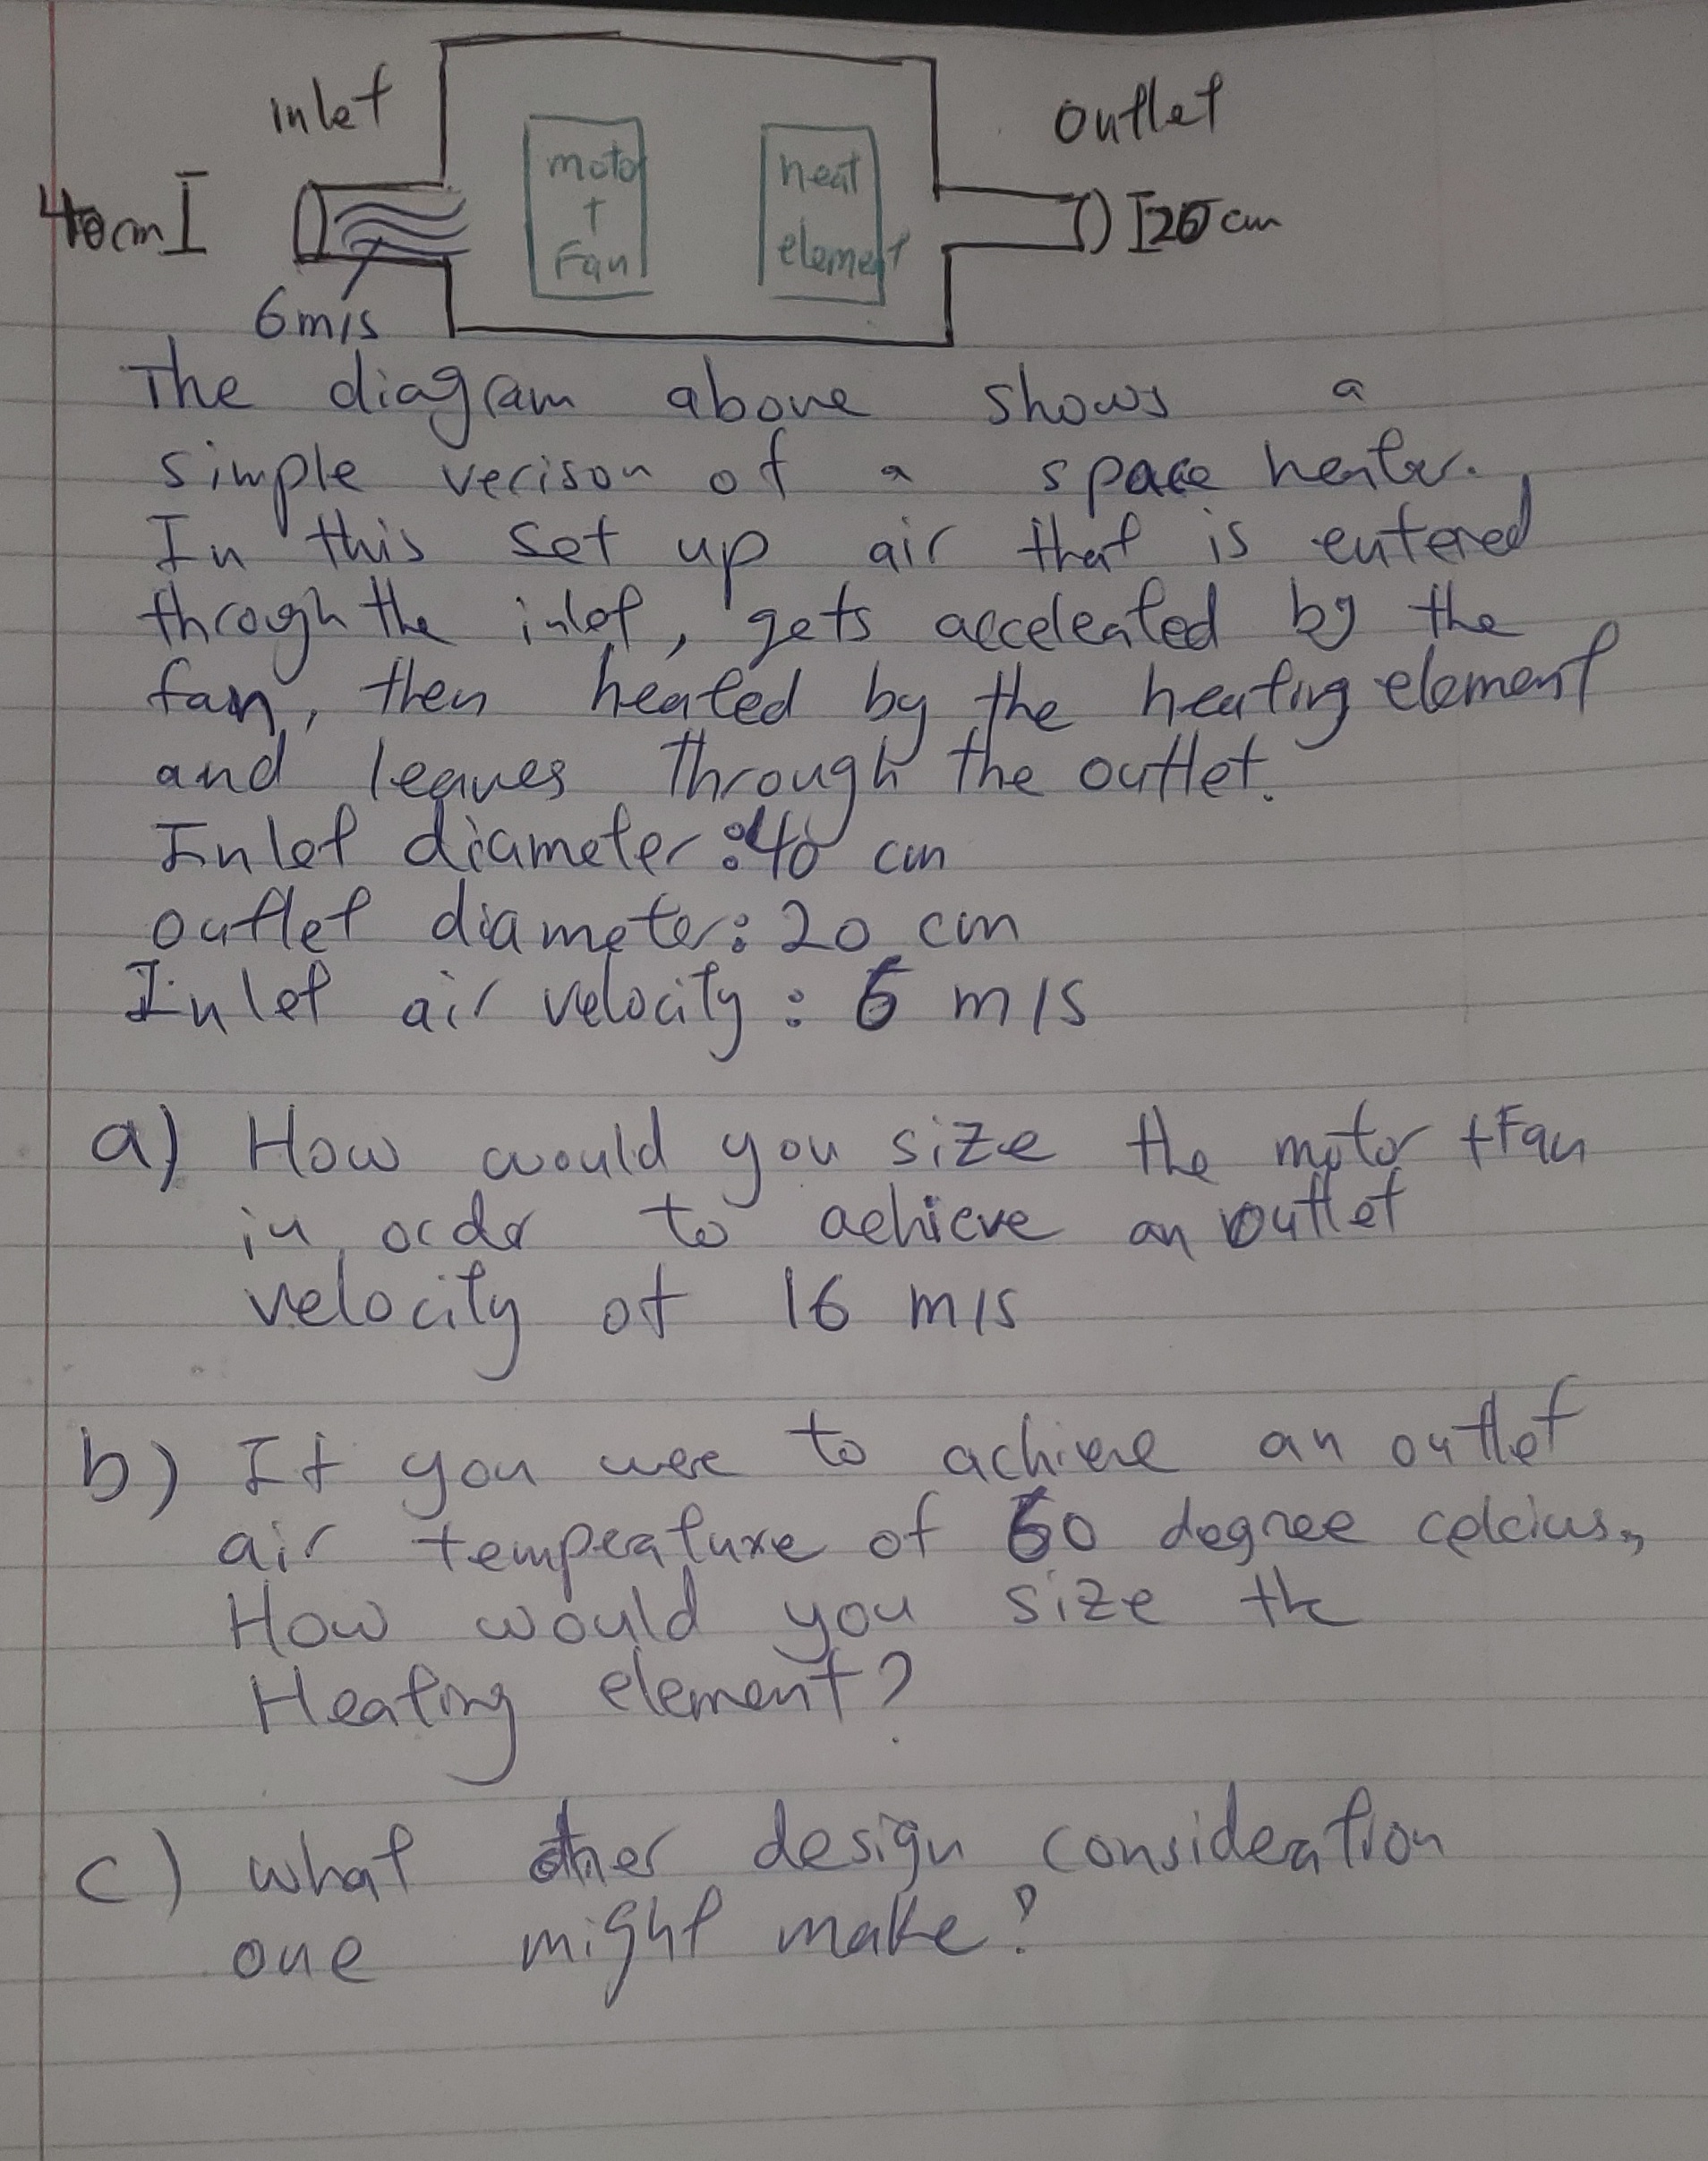 inlet
outlet
moto
+
Fan
heat
element
40cm
20 cm
6m/s
The diagram above shows a
simple verison of a space heater.
In this set up air that is entered
through the inlet, gets acceleated by the
fan, then heated by the heating element
and leaves through the outlet.
Inlet diameter: 40 cm
outlet diameter: 20 cm
Inlet air velocity: 6 m/s
a) How would you size the motor + Fan
in order to achieve an outlet
velocity of 16 m/s
b) If you were to achieve an outlet
air temperature of 60 degree celcius,
How would you size the
Heating element?
c) what other design consideration
one might make?